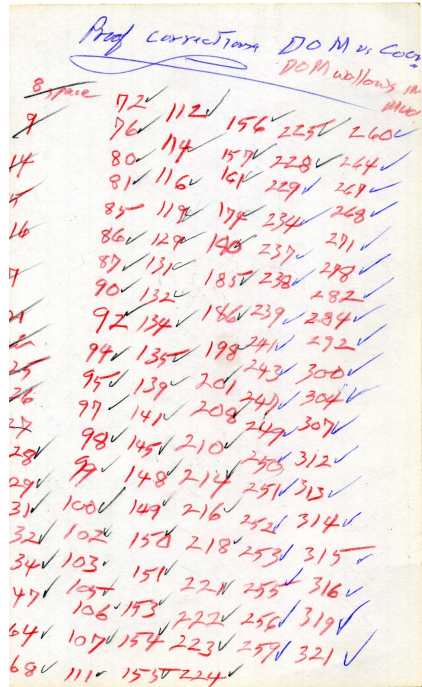 Proof corrections DOM vs Coon
DOM wallows in
mud
8 space
9
14
16
25
26
27
28 ✓
29 ✓
31 ✓
32 ✓
34 ✓
47 ✓
64 ✓
68 ✓
72 ✓
76 ✓
80 ✓
81 ✓
85
86 ✓
87 ✓
90 ✓
92 ✓
94 ✓
95 ✓
97 ✓
98 ✓
99
100 ✓
102 ✓
103 ✓
105
106 ✓
107 ✓
111 ✓
112 ✓
114 ✓
116 ✓
119 ✓
129 ✓
131 ✓
132 ✓
134 ✓
135 ✓
139 ✓
141 ✓
145 ✓
148 ✓
149 ✓
150 ✓
151 ✓
153 ✓
154 ✓
155
156 ✓
157 ✓
161 ✓
174 ✓
180 ✓
185 ✓
186 ✓
198 ✓
201 ✓
208 ✓
210 ✓
214 ✓
216 ✓
218 ✓
221 ✓
222 ✓
223 ✓
224 ✓
225 ✓
228 ✓
229 ✓
234 ✓
237 ✓
238 ✓
239 ✓
241 ✓
243 ✓
247 ✓
249 ✓
250 ✓
251 ✓
252 ✓
253 ✓
255 ✓
256 ✓
259 ✓
260 ✓
264 ✓
267 ✓
268 ✓
271 ✓
278 ✓
282 ✓
284 ✓
292 ✓
300 ✓
304 ✓
307 ✓
312 ✓
313 ✓
314 ✓
315
316 ✓
319 ✓
321 ✓